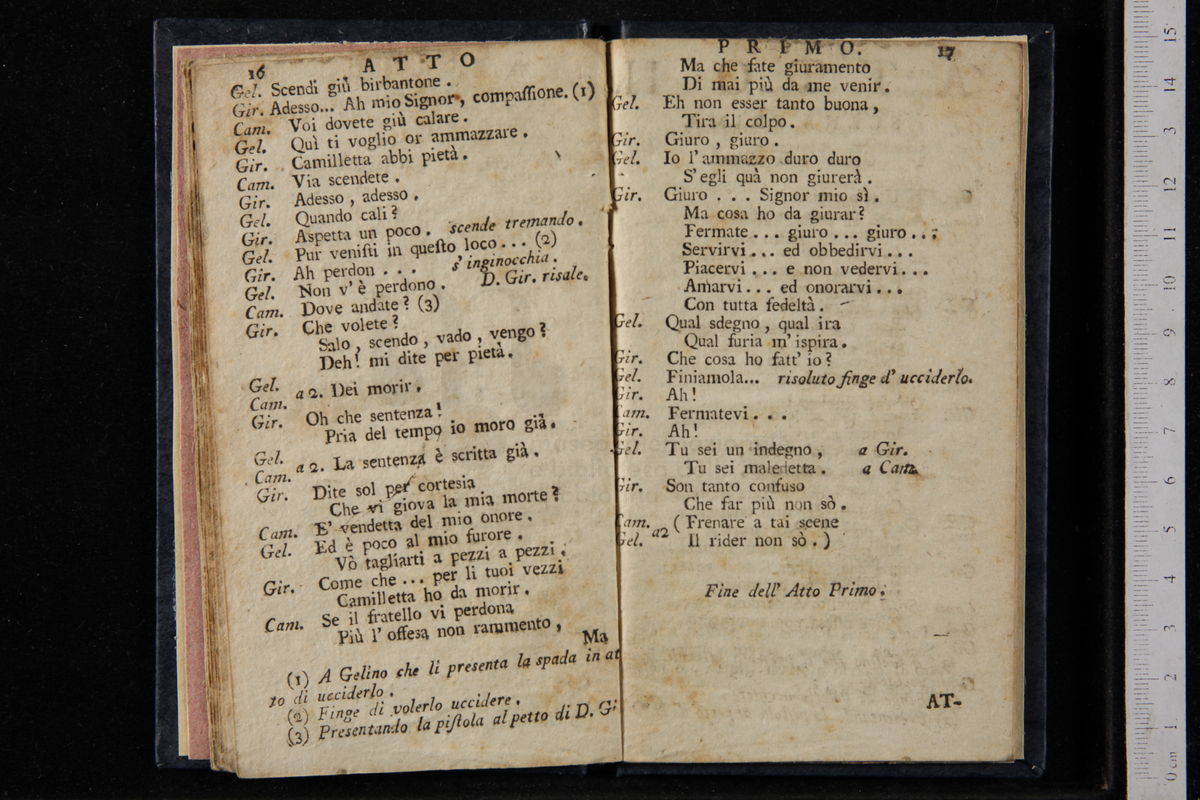 16
ATTO
Gel. Scendi giù birbantone.
Gir. Adesso... Ah mio Signor, compaſſione. (1)
Cam. Voi dovete giù calare.
Gel. Quì ti voglio or ammazzare.
Gir. Camilletta abbi pietà.
Cam. Via scendete.
Gir. Adesso, adesso.
Gel. Quando cali?
Gir. Aspetta un poco. scende tremando.
Gel. Pur veniſti in queſto loco... (2)
Gir. Ah perdon... s'inginocchia.
Gel. Non v'è perdono. D. Gir. risale.
Cam. Dove andate? (3)
Gir. Che volete?
Salo, scendo, vado, vengo?
Deh! mi dite per pietà.
Gel.
Cam. a 2. Dei morir.
Gir. Oh che sentenza!
Pria del tempo io moro già.
Gel.
Cam. a 2. La sentenza è scritta già.
Gir. Dite sol per cortesia
Che vi giova la mia morte?
Cam. E' vendetta del mio onore.
Gel. Ed è poco al mio furore.
Vò tagliarti a pezzi a pezzi.
Gir. Come che... per li tuoi vezzi
Camilletta ho da morir.
Cam. Se il fratello vi perdona
Più l'offesa non rammento,
Ma
(1) A Gelino che li presenta la spada in at
to di ucciderlo.
(2) Finge di volerlo uccidere.
(3) Presentando la piſtola al petto di D. Gi
PRIMO.
17
Ma che fate giuramento
Di mai più da me venir.
Gel. Eh non esser tanto buona,
Tira il colpo.
Gir. Giuro, giuro.
Gel. Io l'ammazzo duro duro
S'egli quà non giurerà.
Gir. Giuro... Signor mio sì.
Ma cosa ho da giurar?
Fermate... giuro... giuro...
Servirvi... ed obbedirvi...
Piacervi... e non vedervi...
Amarvi... ed onorarvi...
Con tutta fedeltà.
Gel. Qual sdegno, qual ira
Qual furia m'ispira.
Gir. Che cosa ho fatt' io?
Gel. Finiamola... risoluto finge d' ucciderlo.
Gir. Ah!
Cam. Fermatevi...
Gir. Ah!
Gel. Tu sei un indegno, a Gir.
Tu sei maledetta. a Cam.
Gir. Son tanto confuso
Che far più non sò.
Cam. a2 (Frenare a tai scene
Gel. Il rider non sò.)
Fine dell' Atto Primo.
AT-